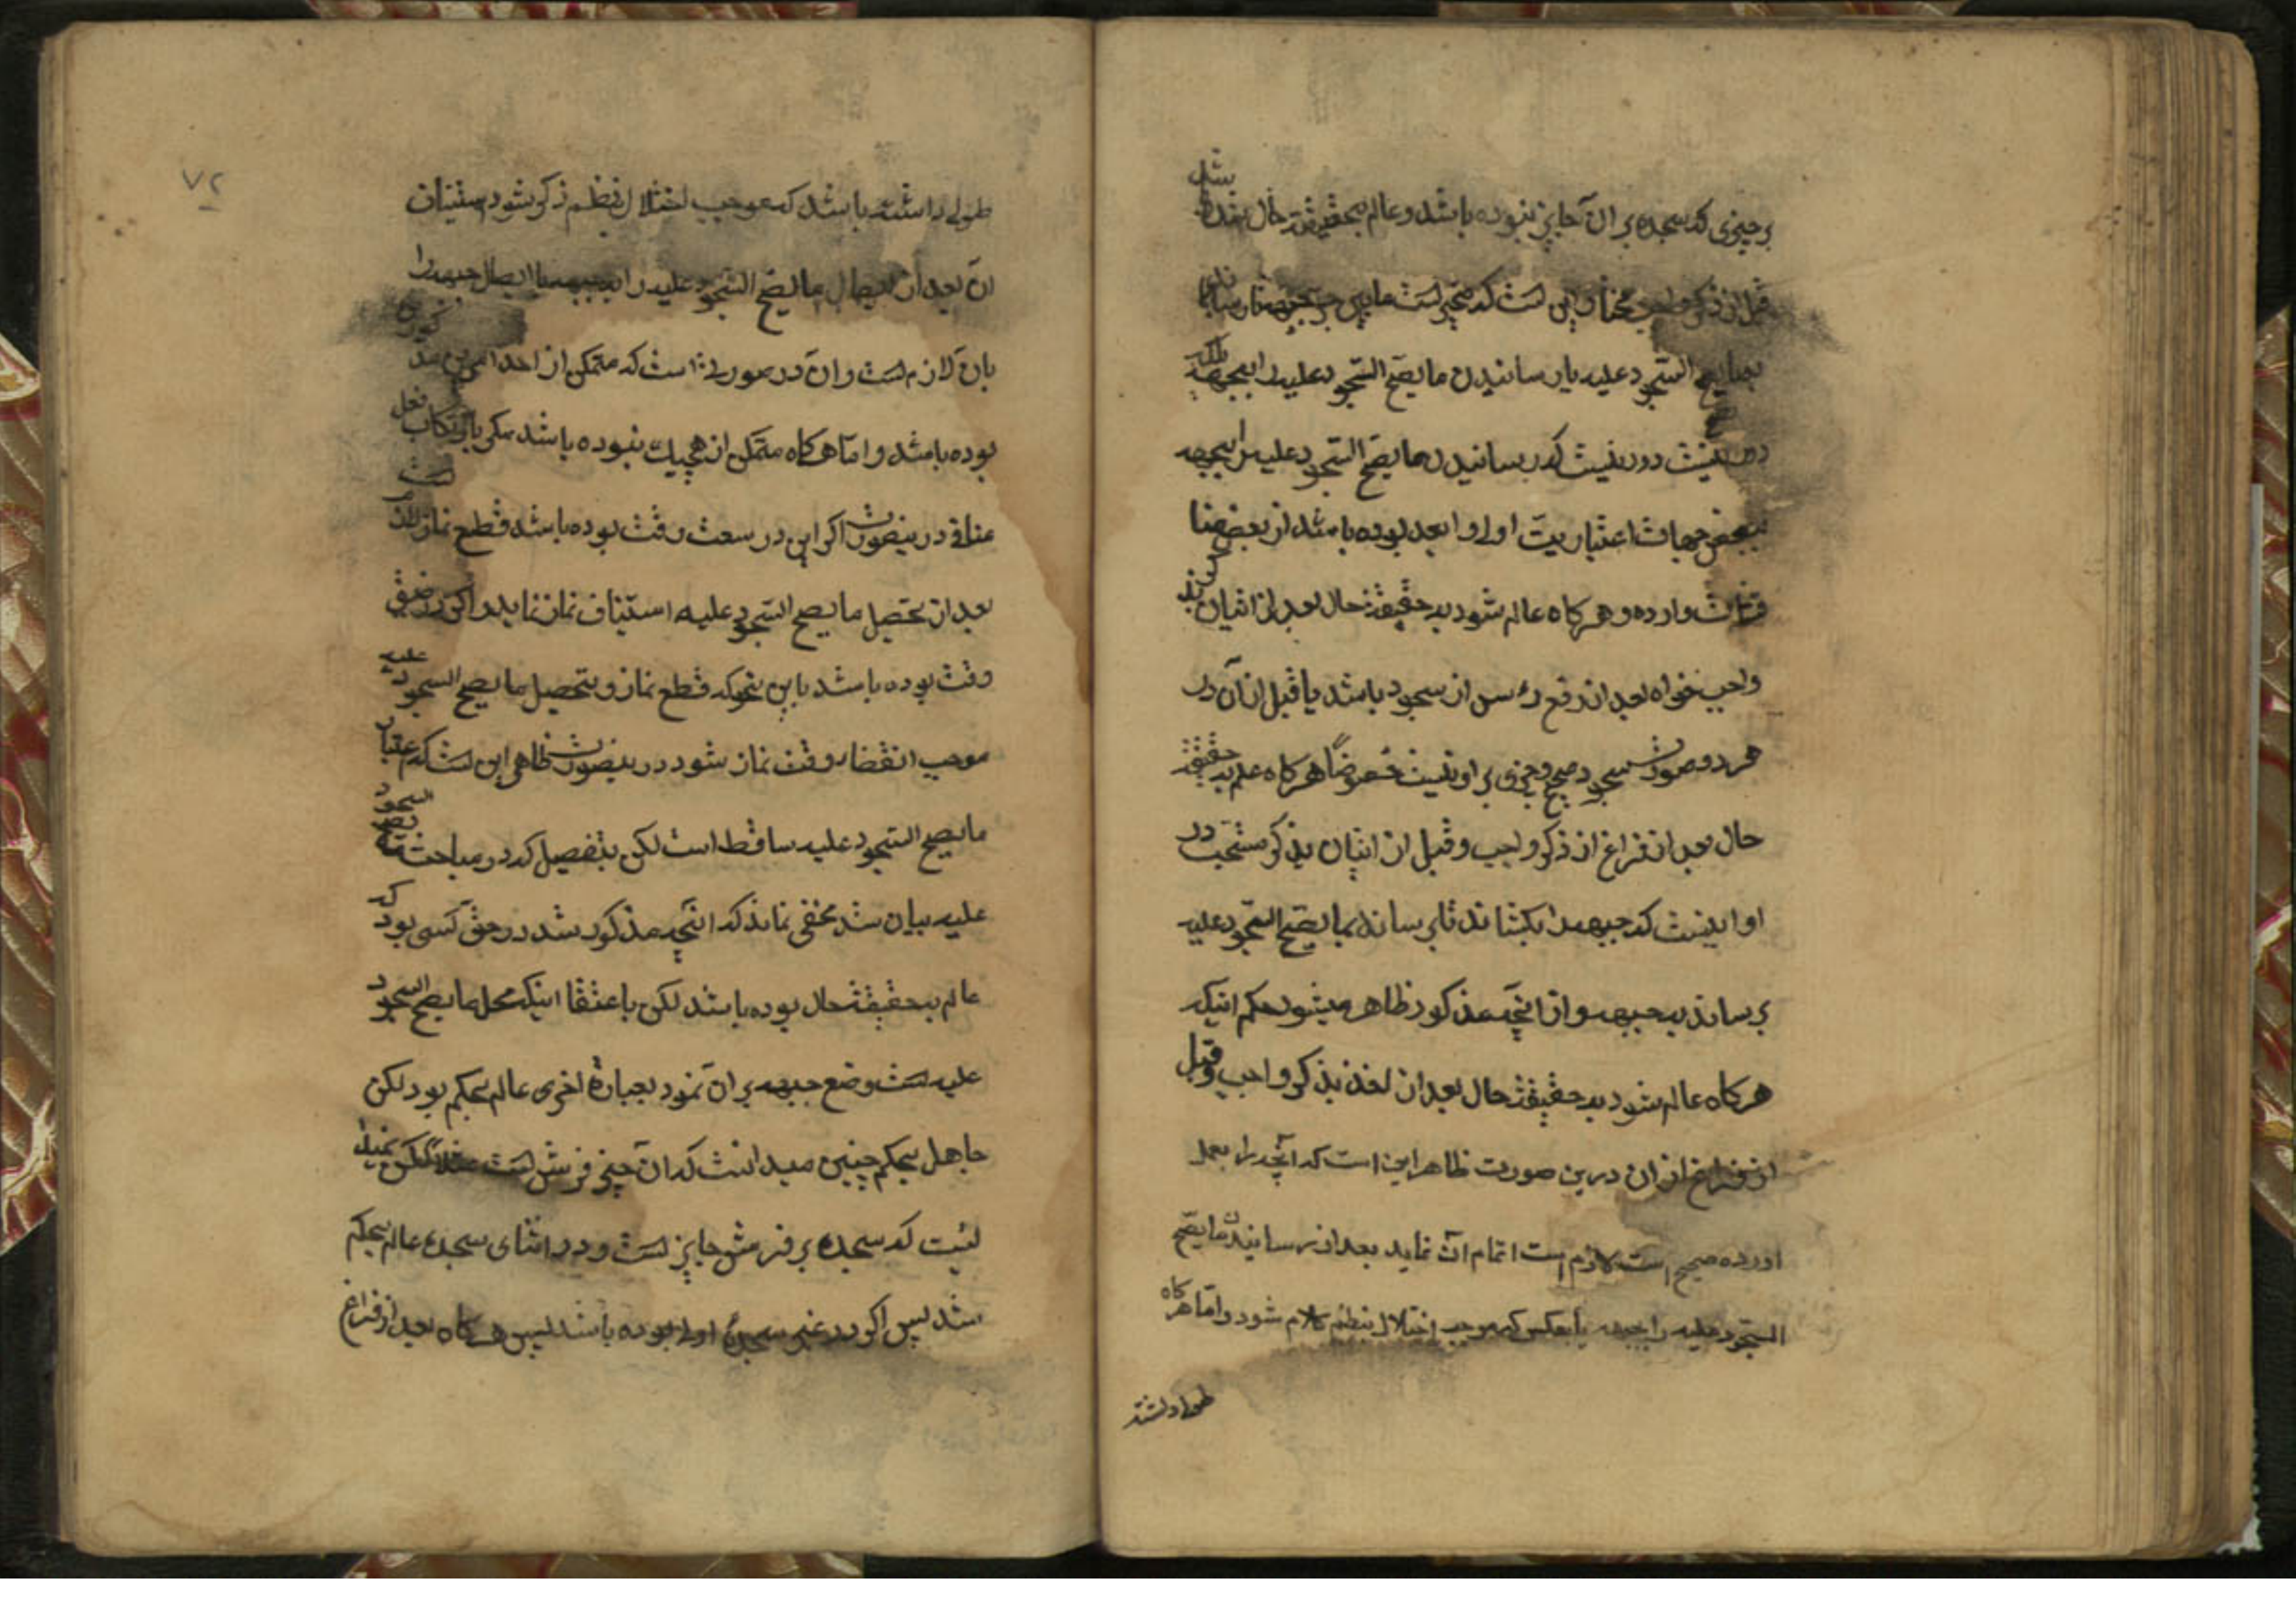 بر چیزی که سجده بر ان جایز نبوده باشد و عالم بحقیقت حال نشد
قبل از ذکر واجب مختار این است که مخیر است مابین جر جبهه
بمایصح السجود علیه یا رسانیدن ما یصح السجود علیه را بجبهه بلکه
دور نیست که رسانیدن ما یصح السجود علیه را بجبهه
ببعض جهات اعتباریت اولی و ابعد بوده باشد از بعض منا
قشات وارده و هرکاه عالم شود بحقیقة حال بعد از اتیان بذکر
واجب خواه بعد از رفع رأس از سجود باشد یا قبل از آن در
هر دو صورت سجود صحیح و چیزی بر او نیست خصوصًا هرکاه علم بحقیقة
حال بعد از فراغ از ذکر واجب و قبل از اتیان بذکر مستحب در
او اینست که جبهه را بکشاند تا برساند بمایصح السجود علیه
برساند بجبهه و از آنچه مذکور ظاهر میشود حکم اینکه
هرکاه عالم شود بحقیقة حال بعد از اخذ بذکر واجب و قبل
از فراغ از ان درین صورت ظاهر این است که آنچه را بعمل
اورده صحیح است لازم است اتمام ان نماید بعد از رسانیدن مایصح
السجود علیه را بجبهه یا بعکس که موجب اختلال بنظم کلام شود و اما هرکاه
طولی داشته
۷۲
طولی داشته باشد که موجب اختلال نظم ذکر شود استیناف
ان بعد از ایصال ما یصح السجود علیه را بجبهه یا ایصال جبهه را
بان لازم است و ان در صورتی است که متمکن از احد امرین مذکورین
بوده باشد و اما هرکاه متمکن از هیچیک نبوده باشد مکر بارتکاب فعل
منافی درینصورت اکر این در سعت وقت بوده باشد قطع نماز لازم است
بعد از تحصیل ما یصح السجود علیه استیناف نماز نماید و اکر در ضیق
وقت بوده باشد باین نحو که قطع نماز و تحصیل ما یصح السجود علیه
موجب انقضاء وقت نماز شود درینصورت ظاهر این است که اعتبار
مایصح السجود علیه ساقط است لکن بتفصیل که در مباحث ما یصح السجود
علیه بیان شد مخفی نماند که آنچه مذکور شد در حق کسی بود که
عالم بحقیقة حال بوده باشد لکن باعتقاد اینکه محل ما یصح السجود
علیه است وضع جبهه بر ان نمود بعبارة اخری عالم بحکم بود لکن
جاهل بحکم چنین میدانست که ان چیز فرش است مثلاً لکن نمیدا
نست که سجده بر فرش جایز است و در اثنای سجده عالم بحکم
شد پس اکر در غیر سجدۀ اولی بوده باشد پس هرکاه بعد از فراغ